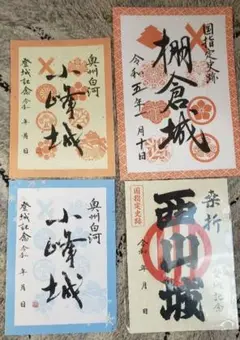 奥州白河
小峰城
登城記念 令和 年 月 日
国指定史跡
棚倉城
令和五年 月十日
奥州白河
小峰城
登城記念 令和 年 月 日
桑折
西山城
国指定史跡
令和 年 月 日